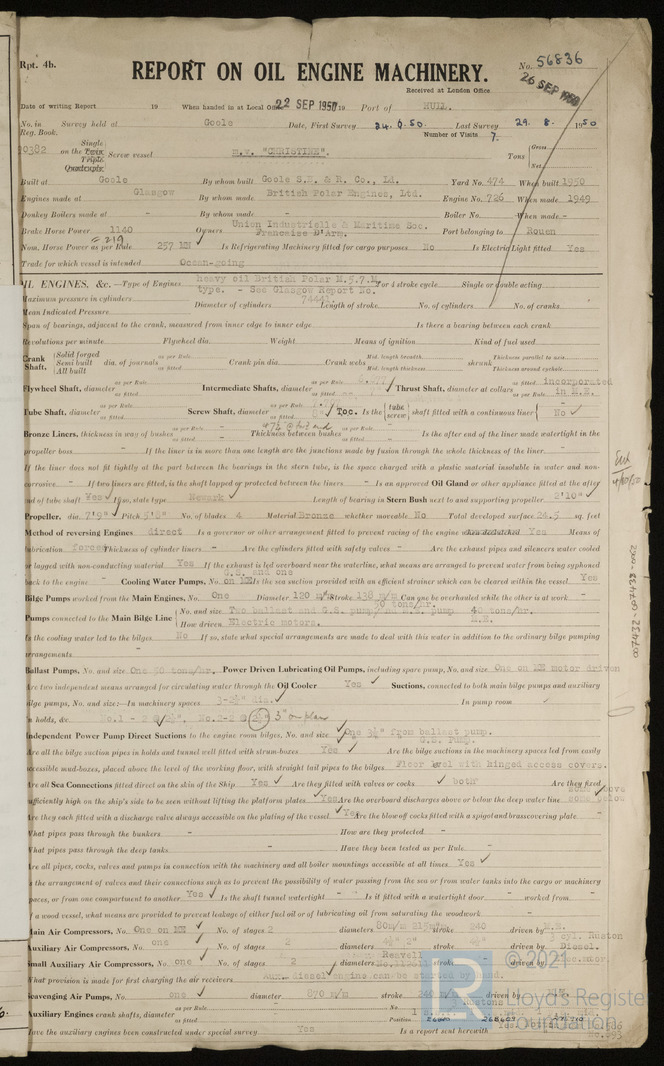 Rpt. 4b.
REPORT ON OIL ENGINE MACHINERY.
No. 56836
26 SEP 1950
Received at London Office
Date of writing Report 19 When handed in at Local Office 22 SEP 1950 19 Port of HULL.
No. in Reg. Book. Survey held at Goole Date, First Survey 24. 6. 50. Last Survey 29. 8. 1950
Number of Visits 7.
10382 on the Single Twin Triple Quadruple Screw vessel m.v. "CHRISTINE". Tons Gross Net
Built at Goole By whom built Goole S.B. & R. Co., Ld. Yard No. 474 When built 1950
Engines made at Glasgow By whom made British Polar Engines, Ltd. Engine No. 726 When made 1949
Donkey Boilers made at - By whom made - Boiler No. - When made -
Brake Horse Power 1140 Owners Union Industrielle & Maritime Soc. Francaise D'Arm. Port belonging to Rouen
Nom. Horse Power as per Rule = 219 257 MN Is Refrigerating Machinery fitted for cargo purposes No Is Electric Light fitted Yes
Trade for which vessel is intended Ocean-going
OIL ENGINES, &c.—Type of Engines Heavy oil British Polar M.5.7.M. type. - See Glasgow Report No. 74441. or 4 stroke cycle Single or double acting
Maximum pressure in cylinders Diameter of cylinders Length of stroke No. of cylinders No. of cranks
Mean Indicated Pressure
Span of bearings, adjacent to the crank, measured from inner edge to inner edge Is there a bearing between each crank
Revolutions per minute Flywheel dia. Weight Means of ignition Kind of fuel used
Crank Shaft, Solid forged Semi built All built dia. of journals as per Rule as fitted Crank pin dia. Crank webs Mid. length breadth Mid. length thickness shrunk Thickness parallel to axis Thickness around eyehole
Flywheel Shaft, diameter as per Rule as fitted Intermediate Shafts, diameter as per Rule as fitted Thrust Shaft, diameter at collars as fitted as per Rule incorporated in M.E.
Tube Shaft, diameter as per Rule as fitted Screw Shaft, diameter as per Rule as fitted T.O.C. Is the tube screw shaft fitted with a continuous liner No
Bronze Liners, thickness in way of bushes as per Rule - as fitted - Thickness between bushes as per Rule as fitted - Is the after end of the liner made watertight in the
propeller boss - If the liner is in more than one length are the junctions made by fusion through the whole thickness of the liner -
If the liner does not fit tightly at the part between the bearings in the stern tube, is the space charged with a plastic material insoluble in water and non-
corrosive - If two liners are fitted, is the shaft lapped or protected between the liners - Is an approved Oil Gland or other appliance fitted at the after
end of tube shaft Yes If so, state type Newark Length of bearing in Stern Bush next to and supporting propeller 2'10"
Propeller, dia. 7'9" Pitch 5'2" No. of blades 4 Material Bronze whether moveable No Total developed surface 24.5 sq. feet
Method of reversing Engines direct Is a governor or other arrangement fitted to prevent racing of the engine when declutched Yes Means of
lubrication forced Thickness of cylinder liners - Are the cylinders fitted with safety valves - Are the exhaust pipes and silencers water cooled
or lagged with non-conducting material Yes If the exhaust is led overboard near the waterline, what means are arranged to prevent water from being syphoned
back to the engine - Cooling Water Pumps, No. G.S. and one on ME Is the sea suction provided with an efficient strainer which can be cleared within the vessel Yes
Bilge Pumps worked from the Main Engines, No. One Diameter 120 m/m Stroke 138 m/m Can one be overhauled while the other is at work -
Pumps connected to the Main Bilge Line No. and size Two ballast and G.S. pump 90 tons/hr. and M.E. pump 40 tons/hr.
How driven Electric motors. M.E.
Is the cooling water led to the bilges No If so, state what special arrangements are made to deal with this water in addition to the ordinary bilge pumping
arrangements -
Ballast Pumps, No. and size One 90 tons/hr. Power Driven Lubricating Oil Pumps, including spare pump, No. and size One on ME motor driven
Are two independent means arranged for circulating water through the Oil Cooler Yes Suctions, connected to both main bilge pumps and auxiliary
bilge pumps, No. and size:—In machinery spaces 3-2½" dia. In pump room
In holds, &c. No.1 - 2 @ 2½", No.2-2 @ 2½" 3" on plan
Independent Power Pump Direct Suctions to the engine room bilges, No. and size One 3½" from ballast pump. G.S. Pump.
Are all the bilge suction pipes in holds and tunnel well fitted with strum-boxes Yes Are the bilge suctions in the machinery spaces led from easily
accessible mud-boxes, placed above the level of the working floor, with straight tail pipes to the bilges Floor level with hinged access covers.
Are all Sea Connections fitted direct on the skin of the Ship Yes Are they fitted with valves or cocks both Are they fixed
sufficiently high on the ship's side to be seen without lifting the platform plates Yes Are the overboard discharges above or below the deep water line some above some below
Are they each fitted with a discharge valve always accessible on the plating of the vessel Yes Are the blow off cocks fitted with a spigot and brass covering plate -
What pipes pass through the bunkers - How are they protected -
What pipes pass through the deep tanks - Have they been tested as per Rule -
Are all pipes, cocks, valves and pumps in connection with the machinery and all boiler mountings accessible at all times Yes
Is the arrangement of valves and their connections such as to prevent the possibility of water passing from the sea or from water tanks into the cargo or machinery
spaces, or from one compartment to another Yes Is the shaft tunnel watertight - Is it fitted with a watertight door - worked from -
If a wood vessel, what means are provided to prevent leakage of either fuel oil or of lubricating oil from saturating the woodwork -
Main Air Compressors, No. One on ME No. of stages 2 diameters stroke 240 driven by M.E.
Auxiliary Air Compressors, No. one No. of stages 2 diameters stroke driven by 3 cyl. Ruston Diesel.
Small Auxiliary Air Compressors, No. one No. of stages 2 diameters Reavell stroke driven by
What provision is made for first charging the air receivers Aux. diesel engine can be started by hand.
Scavenging Air Pumps, No. one diameter 870 m/m stroke 240 m/m driven by M.E.
Auxiliary Engines crank shafts, diameter as per Rule as fitted No. Position
Have the auxiliary engines been constructed under special survey Yes Is a report sent herewith
007432-007438-0062
© 2021
Lloyd's Register
Foundation